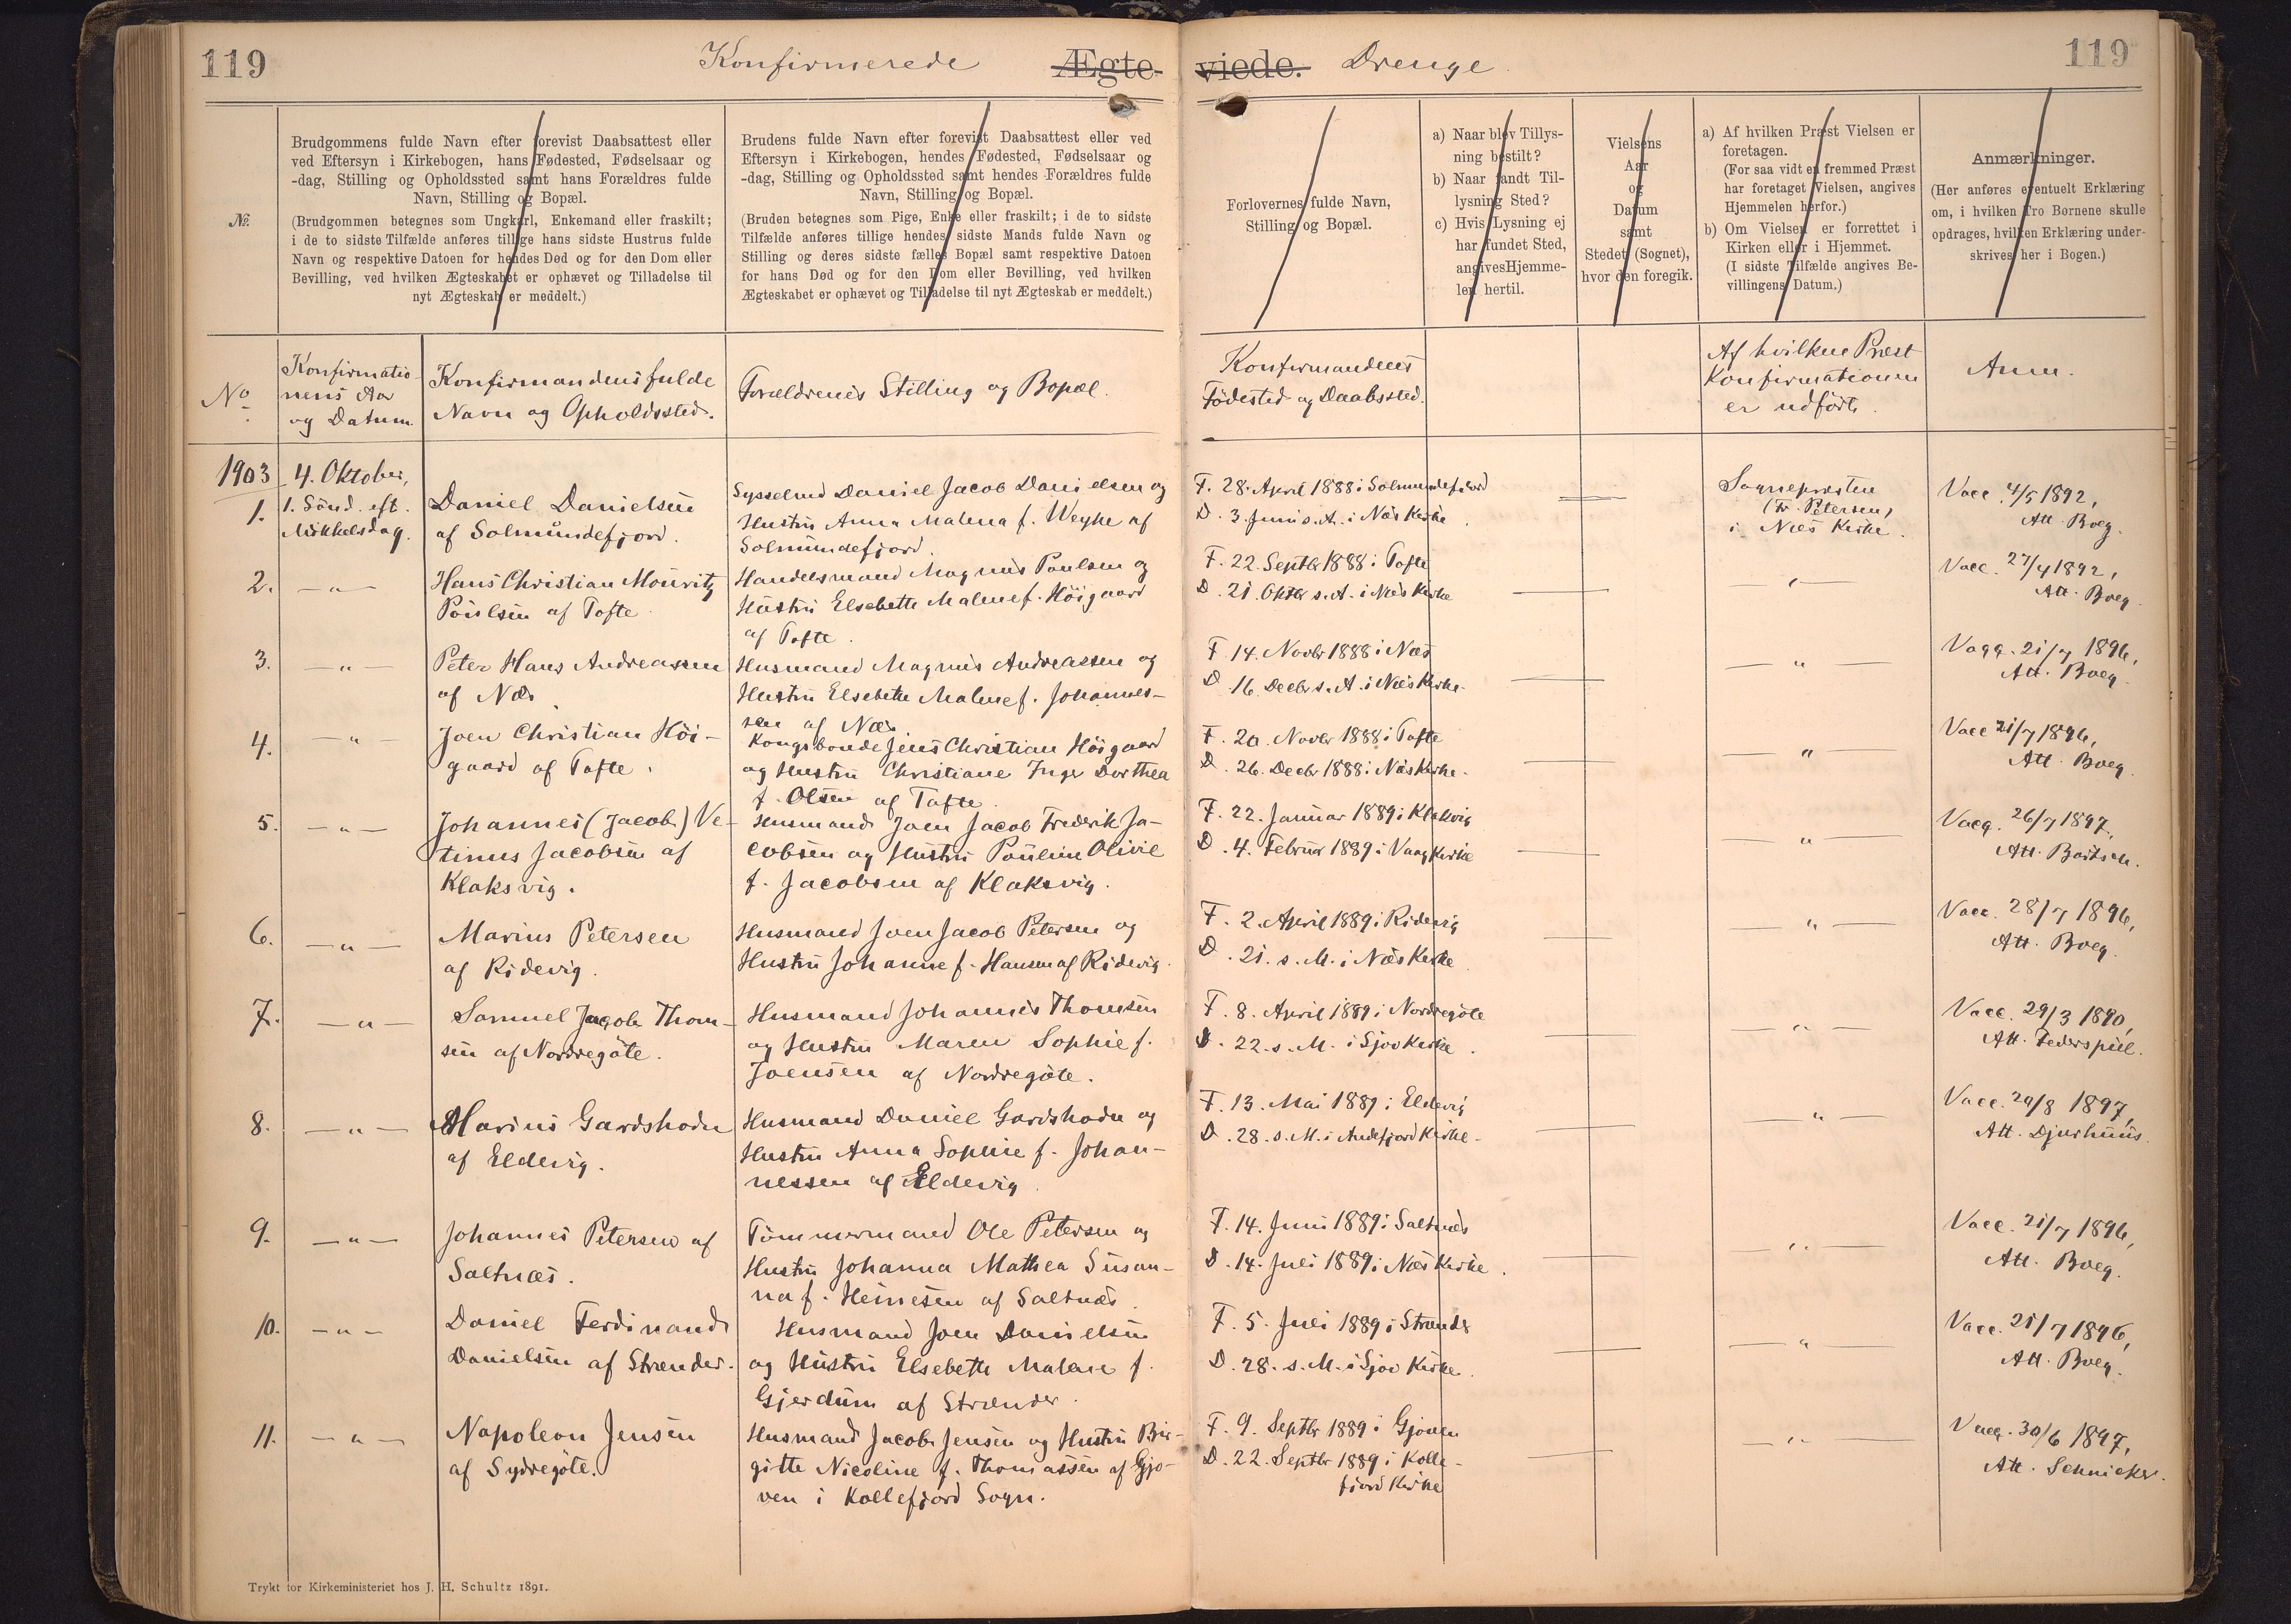 119
Konfirmerede Ægte-
viede. Drenge
119
№.
Brudgommens fulde Navn efter forevist Daabsattest eller
ved Eftersyn i Kirkebogen, hans Fødested, Fødselsaar og
-dag, Stilling og Opholdssted samt hans Forældres fulde
Navn, Stilling og Bopæl.
(Brudgommen betegnes som Ungkarl, Enkemand eller fraskilt;
i de to sidste Tilfælde anføres tillige hans sidste Hustrus fulde
Navn og respektive Datoen for hendes Død og for den Dom eller
Bevilling, ved hvilken Ægteskabet er ophævet og Tilladelse til
nyt Ægteskab er meddelt.)
Brudens fulde Navn efter forevist Daabsattest eller ved
Eftersyn i Kirkebogen, hendes Fødested, Fødselsaar og
-dag, Stilling og Opholdssted samt hendes Forældres fulde
Navn, Stilling og Bopæl.
(Bruden betegnes som Pige, Enke eller fraskilt; i de to sidste
Tilfælde anføres tillige hendes sidste Mands fulde Navn og
Stilling og deres sidste fælles Bopæl samt respektive Datoen
for hans Død og for den Dom eller Bevilling, ved hvilken
Ægteskabet er ophævet og Tilladelse til nyt Ægteskab er meddelt.)
Forlovernes fulde Navn,
Stilling og Bopæl.
a) Naar blev Tillys-
ning bestilt?
b) Naar fandt Til-
lysning Sted?
c) Hvis Lysning ej
har fundet Sted,
angives Hjemme-
len hertil.
Vielsens
Aar
og
Datum
samt
Stedet (Sognet),
hvor den foregik.
a) Af hvilken Præst Vielsen er
foretagen.
(For saa vidt en fremmed Præst
har foretaget Vielsen, angives
Hjemmelen herfor.)
b) Om Vielsen er forrettet i
Kirken eller i Hjemmet.
(I sidste Tilfælde angives Be-
villingens Datum.)
Anmærkninger.
(Her anføres eventuelt Erklæring
om, i hvilken Tro Børnene skulle
opdrages, hvilken Erklæring under-
skrives her i Bogen.)
No
Konfirmatio-
nens Aar
og Datum.
Konfirmandens fulde
Navn og Opholdssted.
Forældrenes Stilling og Bopæl.
Konfirmandens
Födested og Daabssted.
Af hvilken Præst
Konfirmationen
er udfört.
Anm.
1903
1.
4. Oktober,
1. Sönd. eft.
Mikkelsdag.
Daniel Danielsen
af Solmundefjord.
Sysselmd Daniel Jacob Danielsen og
Hustru Anna Malena f. Weyhe af
Solmundefjord.
F. 28. April 1888 i Solmundefjord
D. 3. Juni s. A. i Næs Kirke.
Sognepræsten
(Fr. Petersen)
i Næs Kirke.
Vacc. 4/5 1892,
Att. Boeg.
2.
— „ —
Hans Christian Mouritz
Poulsen af Tofte.
Handelsmand Magnus Poulsen og
Hustru Elsebeth Malene f. Höigaard
af Tofte.
F. 22. Septbr 1888 i Tofte
D. 21. Oktbr s. A. i Næs Kirke
— „ —
Vacc. 27/4 1892,
Att. Boeg.
3.
— „ —
Peter Hans Andreassen
af Næs.
Husmand Magnus Andreassen og
Hustru Elsebeth Malene f. Johannes-
sen af Næs
F. 14. Novbr 1888 i Næs
D. 16. Decbr s. A. i Næs Kirke.
— „ —
Vacc. 21/7 1896,
Att. Boeg.
4.
— „ —
Joen Christian Höi-
gaard af Tofte.
Kongsbonde Jens Christian Höigaard
og Hustru Christiane Inger Dorthea
f. Olsen af Tofte.
F. 20. Novbr 1888 i Tofte
D. 26. Decbr 1888 i Næs Kirke.
— „ —
Vacc 21/7 1896,
Att. Boeg.
5.
— „ —
Johannes (Jacob) Ve-
tinus Jacobsen af
Klaksvig.
Husmand Joen Jacob Frederik Ja-
cobsen og Hustru Pouline Olivie
f. Jacobsen af Klaksvig.
F. 22. Januar 1889 i Klaksvig
D. 4. Februar 1889 i Vaag Kirke
— „ —
Vacc. 26/7 1897,
Att. Bærtsen.
6.
— „ —
Marius Petersen
af Ridevig.
Husmand Joen Jacob Petersen og
Hustru Johanne f. Hansen af Ridevig.
F. 2. April 1889 i Ridevig
D. 21. s. M. i Næs Kirke.
— „ —
Vacc. 28/7 1896,
Att. Boeg.
7.
— „ —
Samuel Jacob Thom-
sen af Nordregöte.
Husmand Johannes Thomsen
og Hustru Maren Sophie f.
Joensen af Nordregöte.
F. 8. April 1889 i Nordregöte
D. 22. s. M. i Sjov Kirke.
— „ —
Vacc. 29/3 1890,
Att. Federspiel.
8.
— „ —
Marius Gardshodn
af Eldevig.
Husmand Daniel Gardshodn og
Hustru Anna Sophie f. Johan-
nessen af Eldevig.
F. 13. Mai 1889 i Eldevig
D. 28. s. M. i Andefjord Kirke.
— „ —
Vacc. 20/8 1897,
Att. Djurhuus.
9.
— „ —
Johannes Petersen af
Saltnæs.
Tömmermand Ole Petersen og
Hustru Johanna Mathea Susan-
na f. Heinesen af Saltnæs.
F. 14. Juni 1889 i Saltnæs
D. 14. Juli 1889 i Næs Kirke.
— „ —
Vacc. 21/7 1896,
Att. Boeg.
10.
— „ —
Daniel Ferdinand
Danielsen af Strænder.
Husmand Joen Danielsen
og Hustru Elsebeth Malene f.
Gjerdum af Strænder.
F. 5. Juli 1889 i Strænder
D. 28. s. M. i Sjov Kirke.
— „ —
Vacc. 21/7 1896,
Att. Boeg.
11.
— „ —
Napoleon Jensen
af Sydregöte.
Husmand Jacob Jensen og Hustru Bir-
gitte Nicoline f. Thomassen af Gjo-
ven i Kollefjord Sogn.
F. 9. Septbr 1889 i Gjoven
D. 22. Septbr 1889 i Kolle-
fjord Kirke
— „ —
Vacc. 30/6 1897,
Att. Schnicker.
Trykt for Kirkeministeriet hos J. H. Schultz 1891.